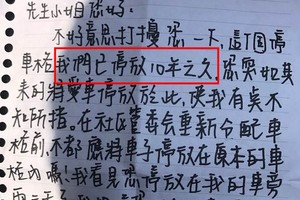 先生小姐您好:
不好意思打擾您一下,這個停
車格我們已停放10年之久,您突如其
來的將愛車停放於此,使我有點不
知所措。在社區管委會重新分配車
格前,不都應將車子停放在原本的車
格內嗎!我看見您停放在我的車旁